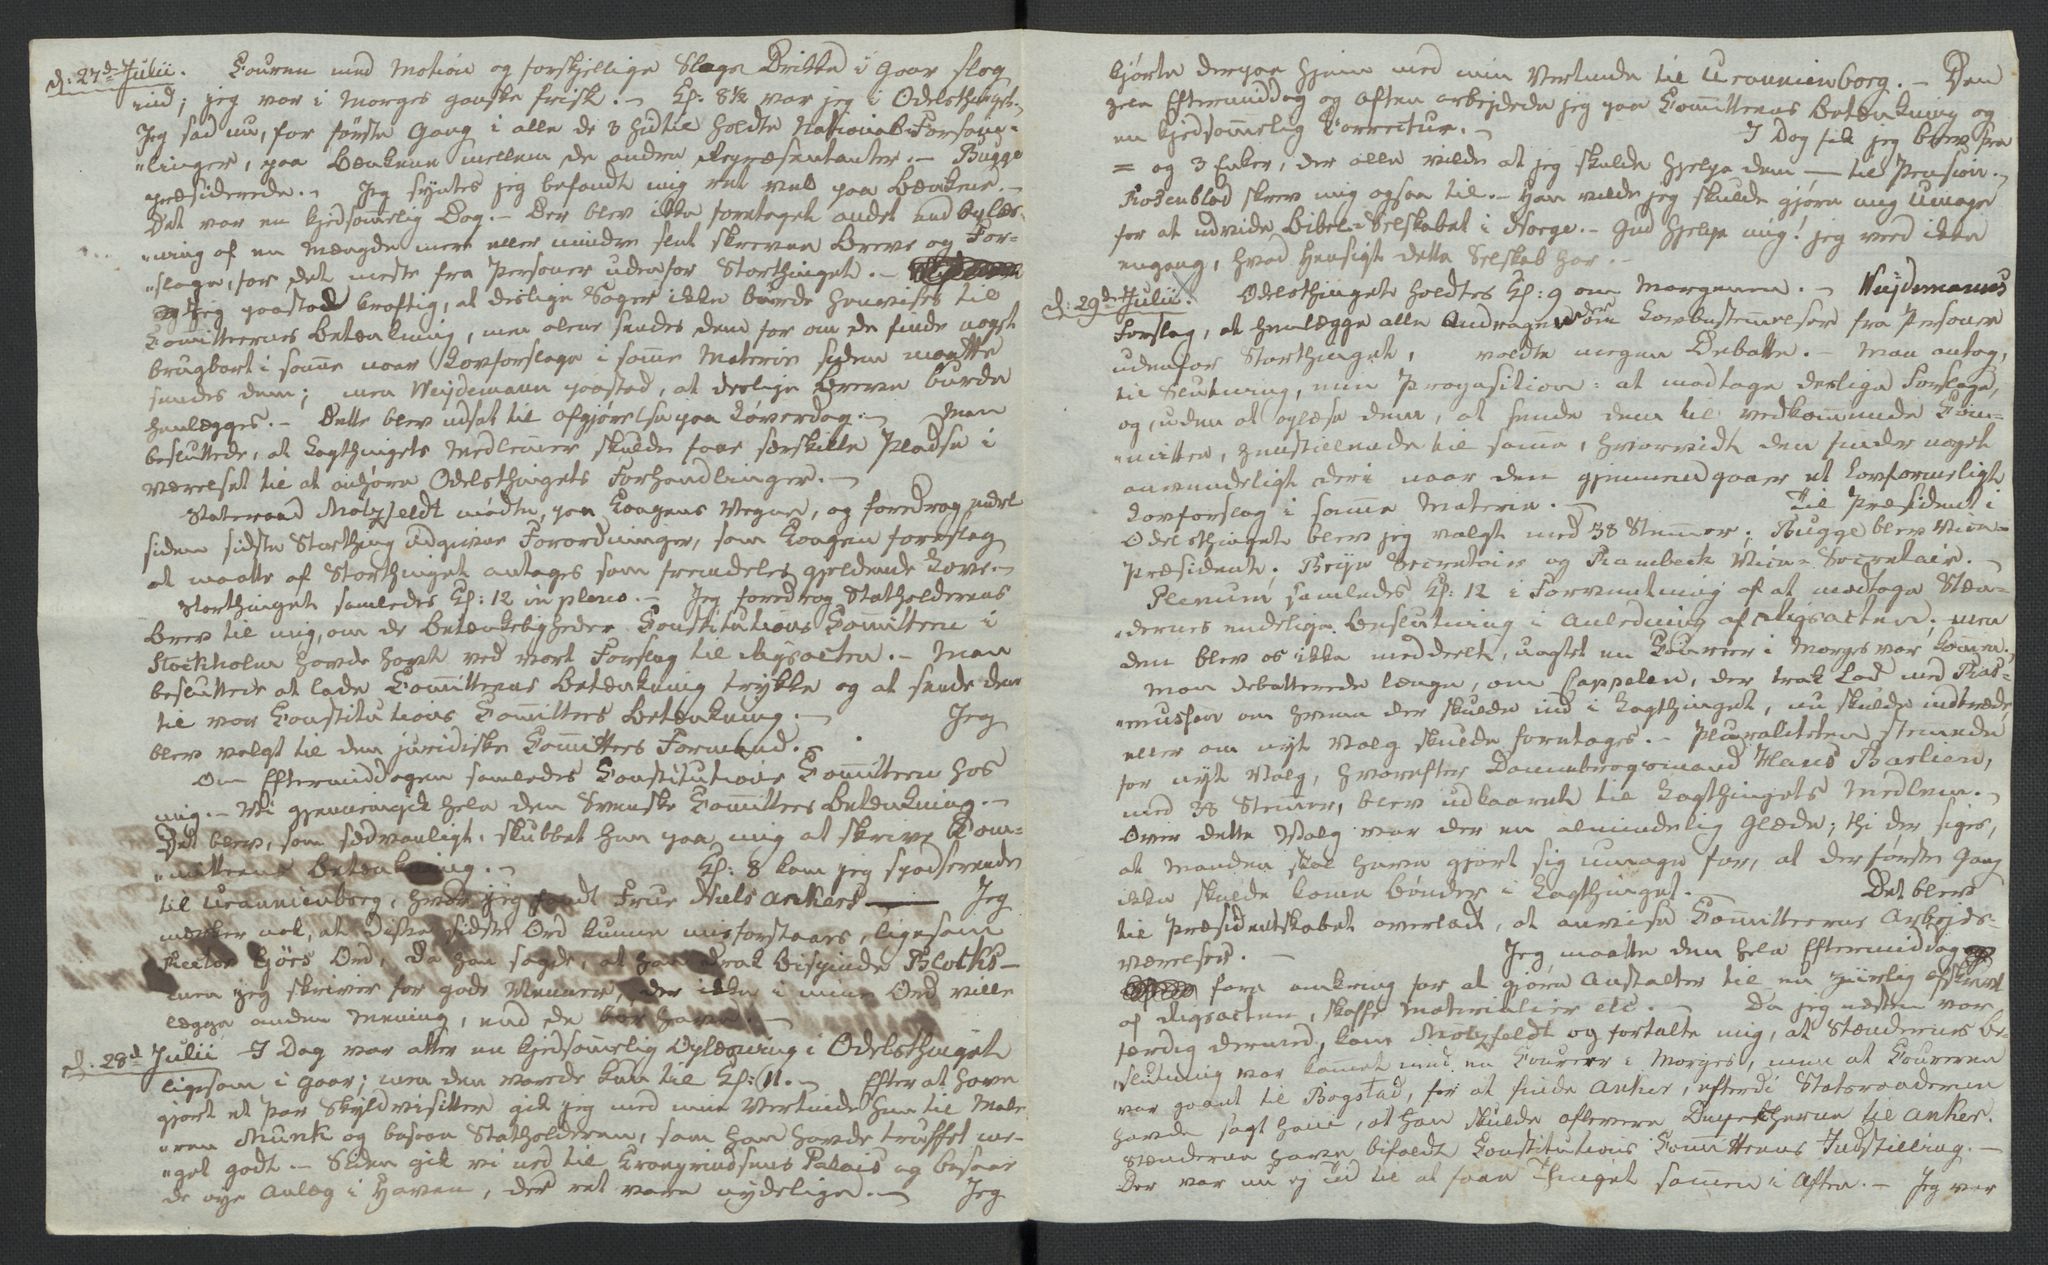 d: 27de Julii. Couren med Motion og forskjellige Slags Drikke i Gaar slog
ind; jeg var i Morges ganske frisk. – Kl: 8½ var jeg i Odelsthinget.
Jeg sad nu, for første Gang i alle de 3 hidtil holdte National-Forsam-
"linger, paa Bænkene mellem de andre Repræsentanter. – Bugge
præsiderede. – Jeg syntes jeg befandt mig ret vel paa Bænkene. –
Det var en kjedsommelig Dag. – Der blev ikke foretaget andet end Oplæs-
"ning af en Mængde mere eller mindre slet skrevne Breve og For-
"slage, for det meste fra Personer udenfor Storthinget. –
Jeg paastod kraftig, at deslige Sager ikke burde henvises til
Committeernes Betænkning, men alene sendes dem for om de finde noget
brugbart i samme naar Lovforslage i samme Materie siden maatte
sendes dem; men Weydemann paastod, at deslige Breve burde
henlægges. – Dette blev udsat til Afgjørelse paa Løverdag. – Man
besluttede, at Lagthingets Medlemmer skulde faae særskilte Pladse i
Værelset til at anhøre Odelsthingets Forhandlinger. –
Statsraad Motzfeldt mødte, paa Kongens Vegne, og foredrog endel
siden sidste Storthing udgivne Forordninger, som Kongen foreslog
at maatte af Storthinget antages som fremdeles gjeldende Love. –
Storthinget samledes Kl: 12 in pleno. – Jeg foredrog Statholderens
Brev til mig, om de Betænkeligheder Constitutions Comitteen i
Stockholm havde havt ved vort Forslag til Rigsacten. – Man
besluttede at lade Committeens Betænkning trykke og at sende den
til vor Constitutions Committees Betænkning. – Jeg
blev valgt til den juridiske Committees Formand. –
Om Eftermiddagen samledes Constitutions Committeen hos
mig. – Vi gjennemgik hele den Svenske Committees Betænkning. –
Det blev, som sædvanligt, skubbet hen paa mig at skrive Com-
"mitteens Betænkning. – Kl: 8 kom jeg spadserende
til Uranienborg, hvor jeg fandt Frue Niels Ankers — Jeg
mærker nok, at disse sidste Ord kunne misforstaaes, ligesom
Rector Ords, da han sagde, at han drak Bispinde Blochs –
men jeg skriver for gode Venner, der ikke i mine Ord ville
lægge anden Mening, end de bør have. –
d. 28de Julii I Dag var atter en kjedsommelig Oplæsning i Odelsthinget
ligesom i Gaar; men den varede kun til Kl: 11. – Efter at have
gjort et Par Skyldvisitter gik jeg med min Vertinde hen til Male-
"ren Munk og besaae Statholderen, som han havde truffet me-
"get godt. – Siden gik vi ned til Cronprindsens Palais og besaae
de nye Anlæg i Haven, der ret vare nydelige. – Jeg
kjørte derpaa hjem med min Vertinde til Uranienborg. – Den
hele Eftermiddag og Aften arbejdede jeg paa Committeens Betænkning og
en kjedsommelig Correctur. – I Dag fik jeg Brev fra
= og 3 Enker, der alle vilde at jeg skulde hjelpe dem — til Pension. –
Rosenblad skrev mig ogsaa til. – Han vilde jeg skulde gjøre mig Umage
for at udvide Bibel-Selskabet i Norge. – Gud hjelpe mig! jeg veed ikke
engang, hvad Hensigt dette Selskab har. –
d: 29de Julii. Odelsthinget holdtes Kl: 9 om Morgenen. – Weydemanns
Forslag, at henlægge alle Andragender om Lovbestemmelser fra Personer
udenfor Storthinget, voldte megen Debatte. – Man antog,
til Slutning, min Proposition: at modtage deslige Forslage,
og, uden at oplæse dem, at sende dem til vedkommende Com-
"mittee, henstillende til samme, hvorvidt den finder noget
anvendeligt deri naar den gjennemgaaer et lovformeligt
Lovforslag i samme Materie. – Til Præsident i
Odelsthinget blev jeg valgt med 38 Stemmer; Bugge blev Vice-
Præsident; Bryn Secretair og Rambech Vice-Secretair. –
Plenum samledes Kl: 12 i Forventning af at modtage Stæn-
"dernes endelige Beslutning i Anledning af Rigsacten; men
den blev os ikke meddeelt, uagtet en Coureer i Morges var kommen. –
Man debatterede længe, om Cappelen, der trak Lod med Ras-
"mussen om hvem der skulde ind i Lagthinget, nu skulde indtræde,
eller om nyt Valg skulde foretages. – Pluraliteten stemmede
for nyt Valg, hvorefter Dannebrogsmand Hans Barlien,
med 38 Stemmer, blev udkaaret til Lagthingets Medlem. –
Over dette Valg var der en almindelig Glæde; thi der siges,
at Manden skal have gjort sig Umage for, at der første Gang
ikke skulde komme Bønder i Lagthinget. – Det blev
til Præsidentskabet overladt, at anvise Committeernes Arbejds-
værelser. – Jeg maatte den hele Eftermiddag
fare omkring for at gjøre Anstalter til en ziirlig Afskrivt
af Rigsacten, skaffe Materialier etc. – Da jeg næsten var
færdig dermed, kom Motzfeldt og fortalte mig, at Stændernes Be-
"slutning var kommet med en Coureer i Morges, men at Coureren
var gaaet til Bogstad, for at finde Anker, efterdi Statsraaderne
havde sagt ham, at han skulde aflevere Depecherne til Anker.
Stænderne have bifaldt Constitutions Committeens Indstilling. –
Der var nu ej Tid til at faae Thinget sammen i Aften. – Jeg var